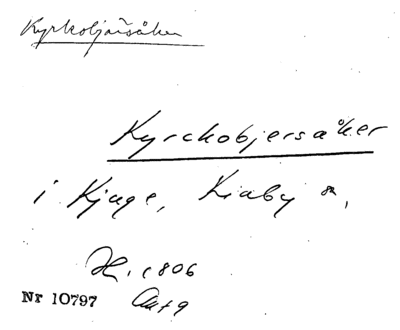 Kyrkobjärsåker
Kyrckobjersåker
i Kjuge, Kiaby sn,
H. 1806
Nr 10797